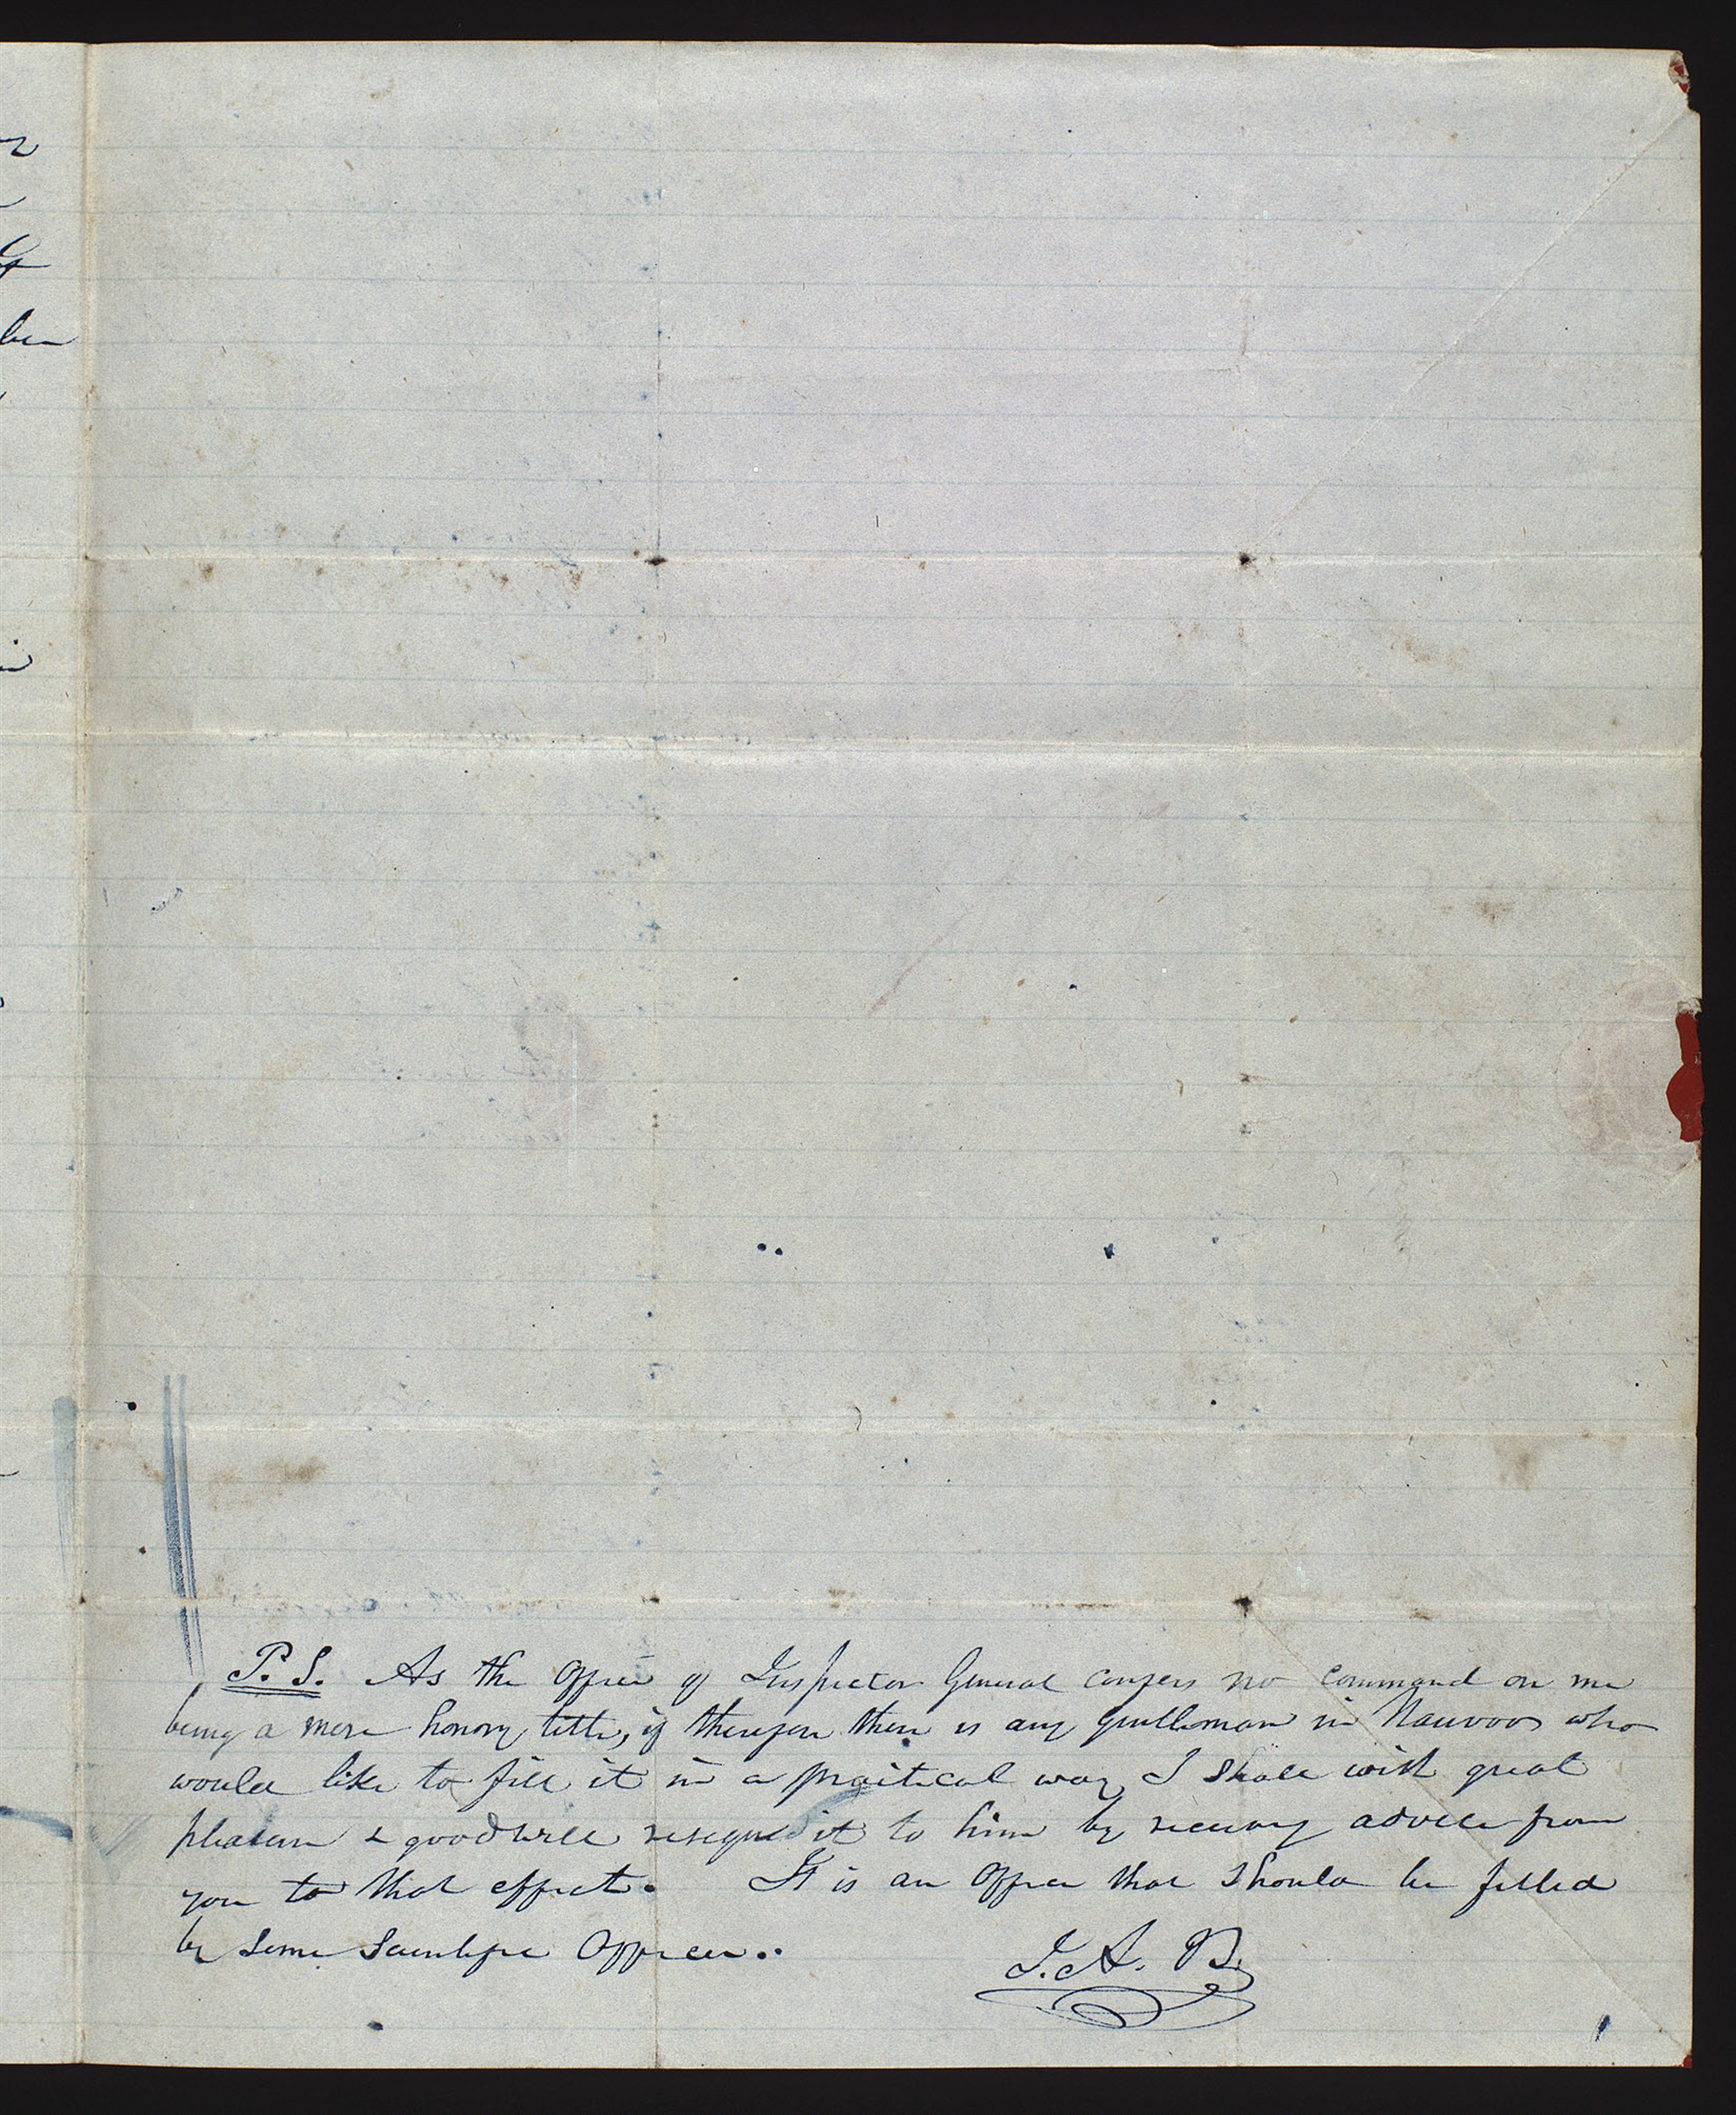 P.S. As the office of Inspector General confers no command on me
being a mere honory title, if therefore there is any gentleman in Nauvoo who
would like to fill it in a practical way, I shall with great
pleasure & good will resign it to him by receiving advice from
you to that effect. It is an office that should be filled
by some scientific officer..
J. A. B.